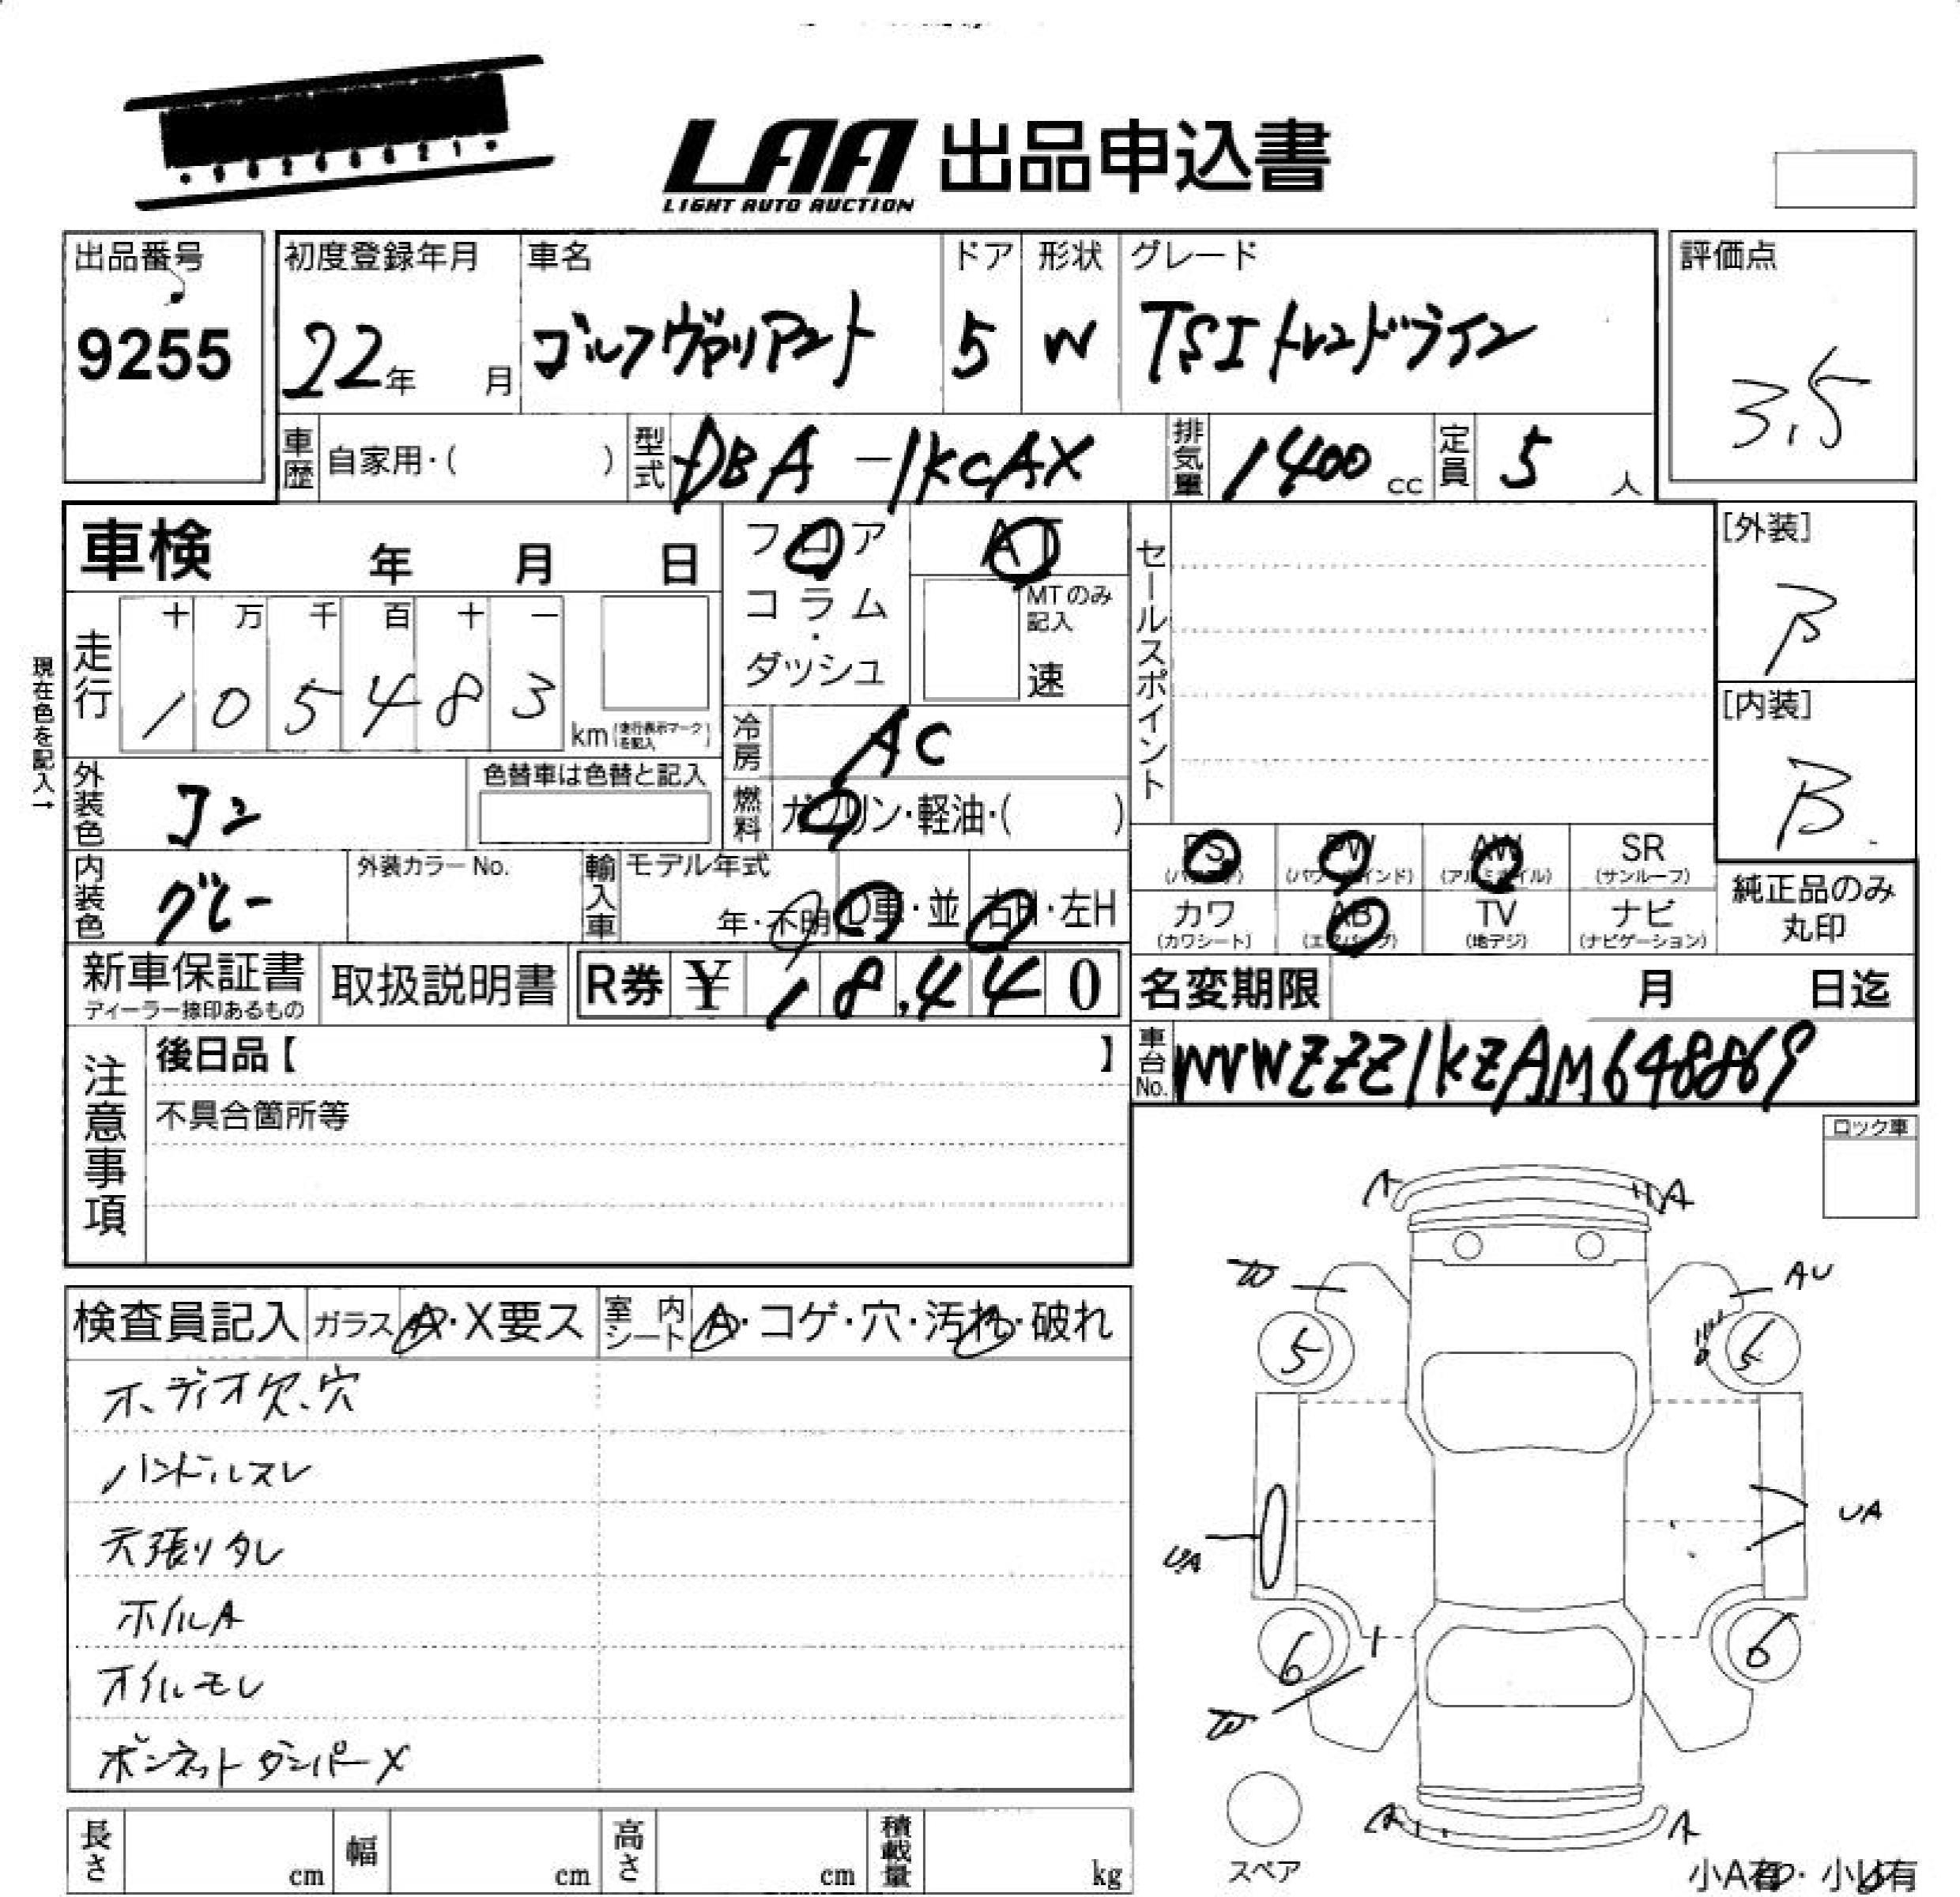 LAA 出品申込書
LIGHT AUTO AUCTION
出品番号
9255
初度登録年月
22年 月
車名
ゴルフヴァリアント
ドア
5
形状
W
グレード
TSIトレンドライン
評価点
3.5
車歴 自家用・( )
型式 DBA-1KCAX
排気量 1400 cc
定員 5 人
車検 年 月 日
フロア
コラム
・
ダッシュ
AT
MTのみ
記入
速
セールスポイント
[外装]
B
[内装]
B
現在色を記入→
走行
十 万 千 百 十 一
1 0 5 4 8 3
km (走行表示マークを記入)
冷房 AC
燃料 ガソリン・軽油・( )
外装色 コン
色替車は色替と記入
内装色 グレー
外装カラーNo.
輸入車 モデル年式
年・不明 D車・並 右H・左H
PS (パワステ)
PW (パワーウインド)
AW (アルミホイル)
SR (サンルーフ)
カワ (カワシート)
AB (エアバッグ)
TV (地デジ)
ナビ (ナビゲーション)
純正品のみ
丸印
新車保証書
ディーラー捺印あるもの
取扱説明書
R券 ¥ 18,440
名変期限 月 日迄
注意事項
後日品【 】
不具合箇所等
車台No. WVWZZZ1KZAM648869
ロック車
検査員記入
ガラス A・X要ス
室内シート A・コゲ・穴・汚れ・破れ
オーディオ欠、穴
ハンドルスレ
天張りタレ
ホイルA
オイルモレ
ボンネットダンパーX
A
A
W
AU
5
5
UA
UA
6
6
W
A
A
スペア
小A有・小U有
長さ cm
幅 cm
高さ cm
積載量 kg